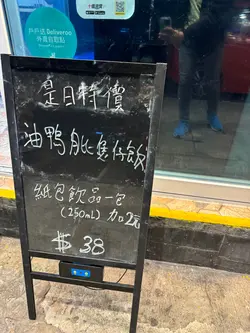 戶戶送 Deliveroo
外賣有數點
是日特價
油鴨髀煲仔飯
紙包飲品一包
(250mL) 加2元
$38